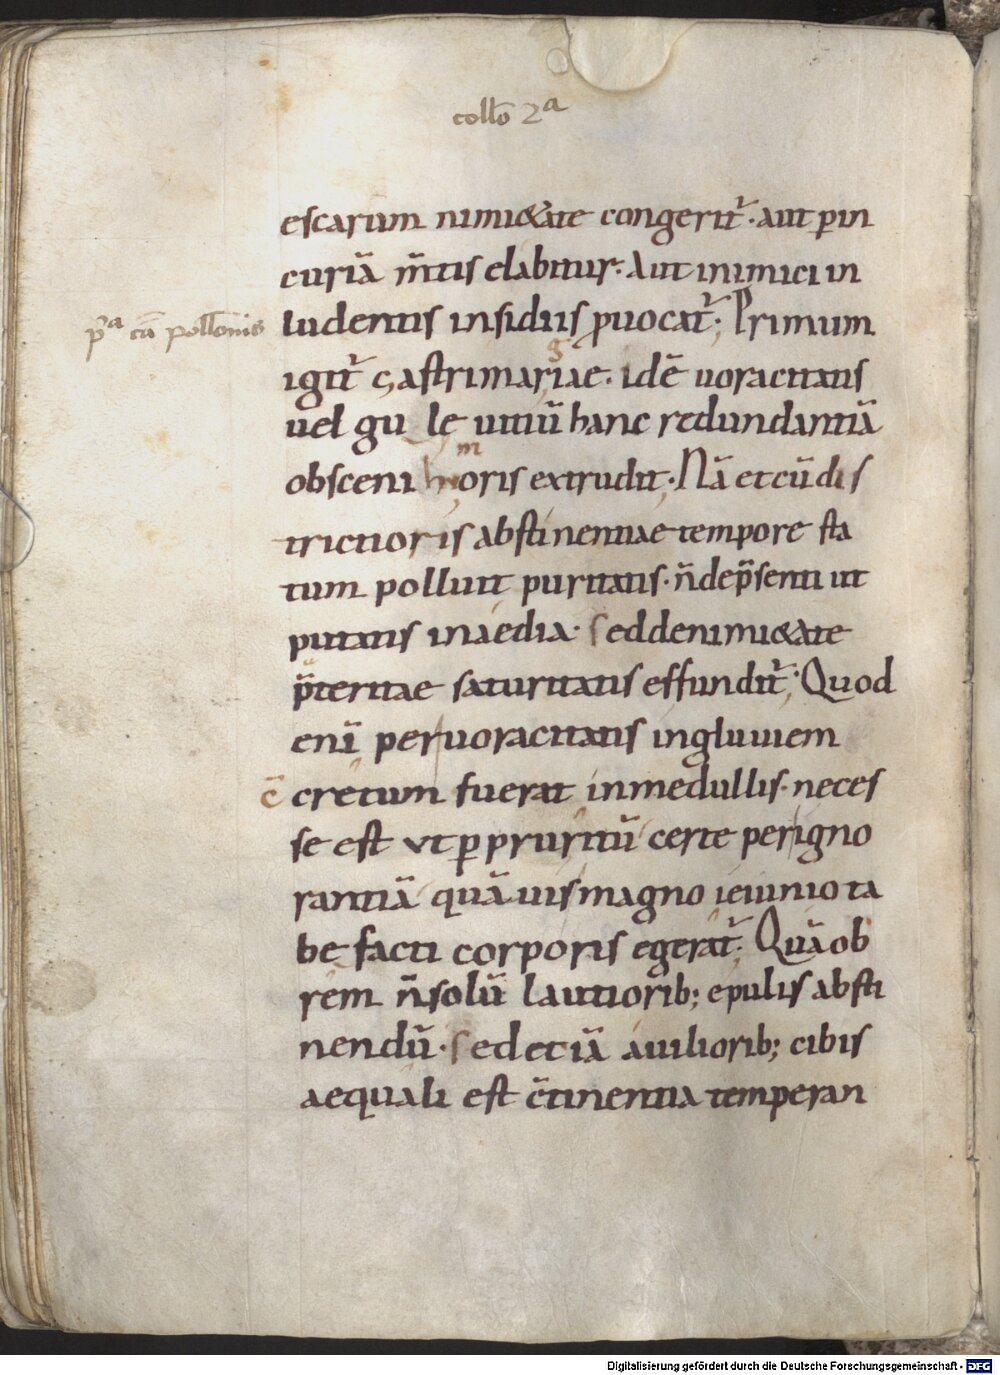 collō 2ᵃ
escarum nimi&ate congerit᷑· aut ꝑin
curiā m̄tis elabitur· Aut inimici in
pᵃ cā pollōnis
ludentis insidiis ꝓuocat᷑; Primum
igit᷑ gastrimargiae· idē uoracitatis
uel gu le uitiū hanc redundantiā
obsceni hmoris extrudit· Nā et cū dis
trictioris abstinentiae tempore sta
tum polluit puritatis· n̄ de p̄senti ut
putatis inaedia· sed de nimi&ate
p̄teritae saturitatis effundit᷑; Quod
enī per uoracitatis ingluuiem
c̄ cretum fuerat in medullis· neces
se est ut ꝑ pruritū certe per igno
rantiā quāuis magno ieiunio ta
be facti corporis egerat᷑; Quā ob
rem n̄ solū lautiorib; epulis absti
nendū· sed etiā auiliorib; cibis
aequali est c̄tinentia temperan
Digitalisierung gefördert durch die Deutsche Forschungsgemeinschaft - DFG